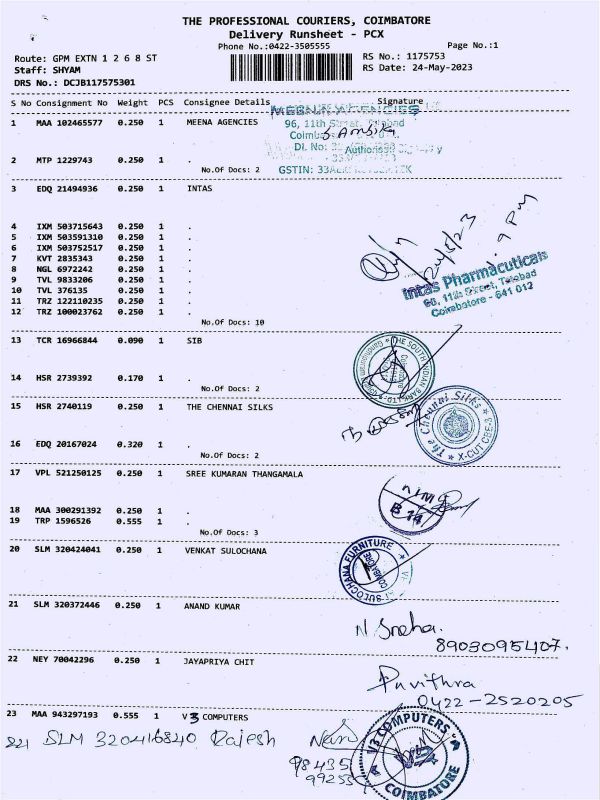 THE PROFESSIONAL COURIERS, COIMBATORE
Delivery Runsheet - PCX
Phone No.:0422-3505555 Page No.:1
Route: GPM EXTN 1 2 6 8 ST RS No.: 1175753
Staff: SHYAM RS Date: 24-May-2023
DRS No.: DCJB117575301
S No Consignment No Weight PCS Consignee Details Signature
MEENA AGENCIES
1 MAA 102465577 0.250 1 MEENA AGENCIES
96, 11th Street, Tatabad
DI. No:
Authorised
2 MTP 1229743 0.250 1 .
No.Of Docs: 2
GSTIN:
3 EDQ 21494936 0.250 1 INTAS
4 IXM 503715643 0.250 1 .
5 IXM 503591310 0.250 1 .
6 IXM 503752517 0.250 1 .
7 KVT 2835343 0.250 1 .
8 NGL 6972242 0.250 1 .
9 TVL 9833206 0.250 1 .
10 TVL 376135 0.250 1 .
11 TRZ 122110235 0.250 1 .
12 TRZ 100023762 0.250 1 .
No.Of Docs: 10
Intas Pharmaceuticals
96, 11th Street, Tatabad
Coimbatore - 641 012
13 TCR 16966844 0.090 1 SIB
THE SOUTH INDIAN BANK LTD
14 HSR 2739392 0.170 1 .
No.Of Docs: 2
15 HSR 2740119 0.250 1 THE CHENNAI SILKS
The Chennai Silks
X-CUT CBE-3
16 EDQ 20167024 0.320 1 .
No.Of Docs: 2
17 VPL 521250125 0.250 1 SREE KUMARAN THANGAMALA
18 MAA 300291392 0.250 1 .
19 TRP 1596526 0.555 1 .
No.Of Docs: 3
20 SLM 320424041 0.250 1 VENKAT SULOCHANA
SULOCHANA FURNITURE
21 SLM 320372446 0.250 1 ANAND KUMAR
N. Sneha.
8903095407.
22 NEY 70042296 0.250 1 JAYAPRIYA CHIT
Pavithra
0422-2520205
23 MAA 943297193 0.555 1 V3 COMPUTERS
SLM 320416840 Rajesh
98435
99255
V3 COMPUTERS
V3
COIMBATORE